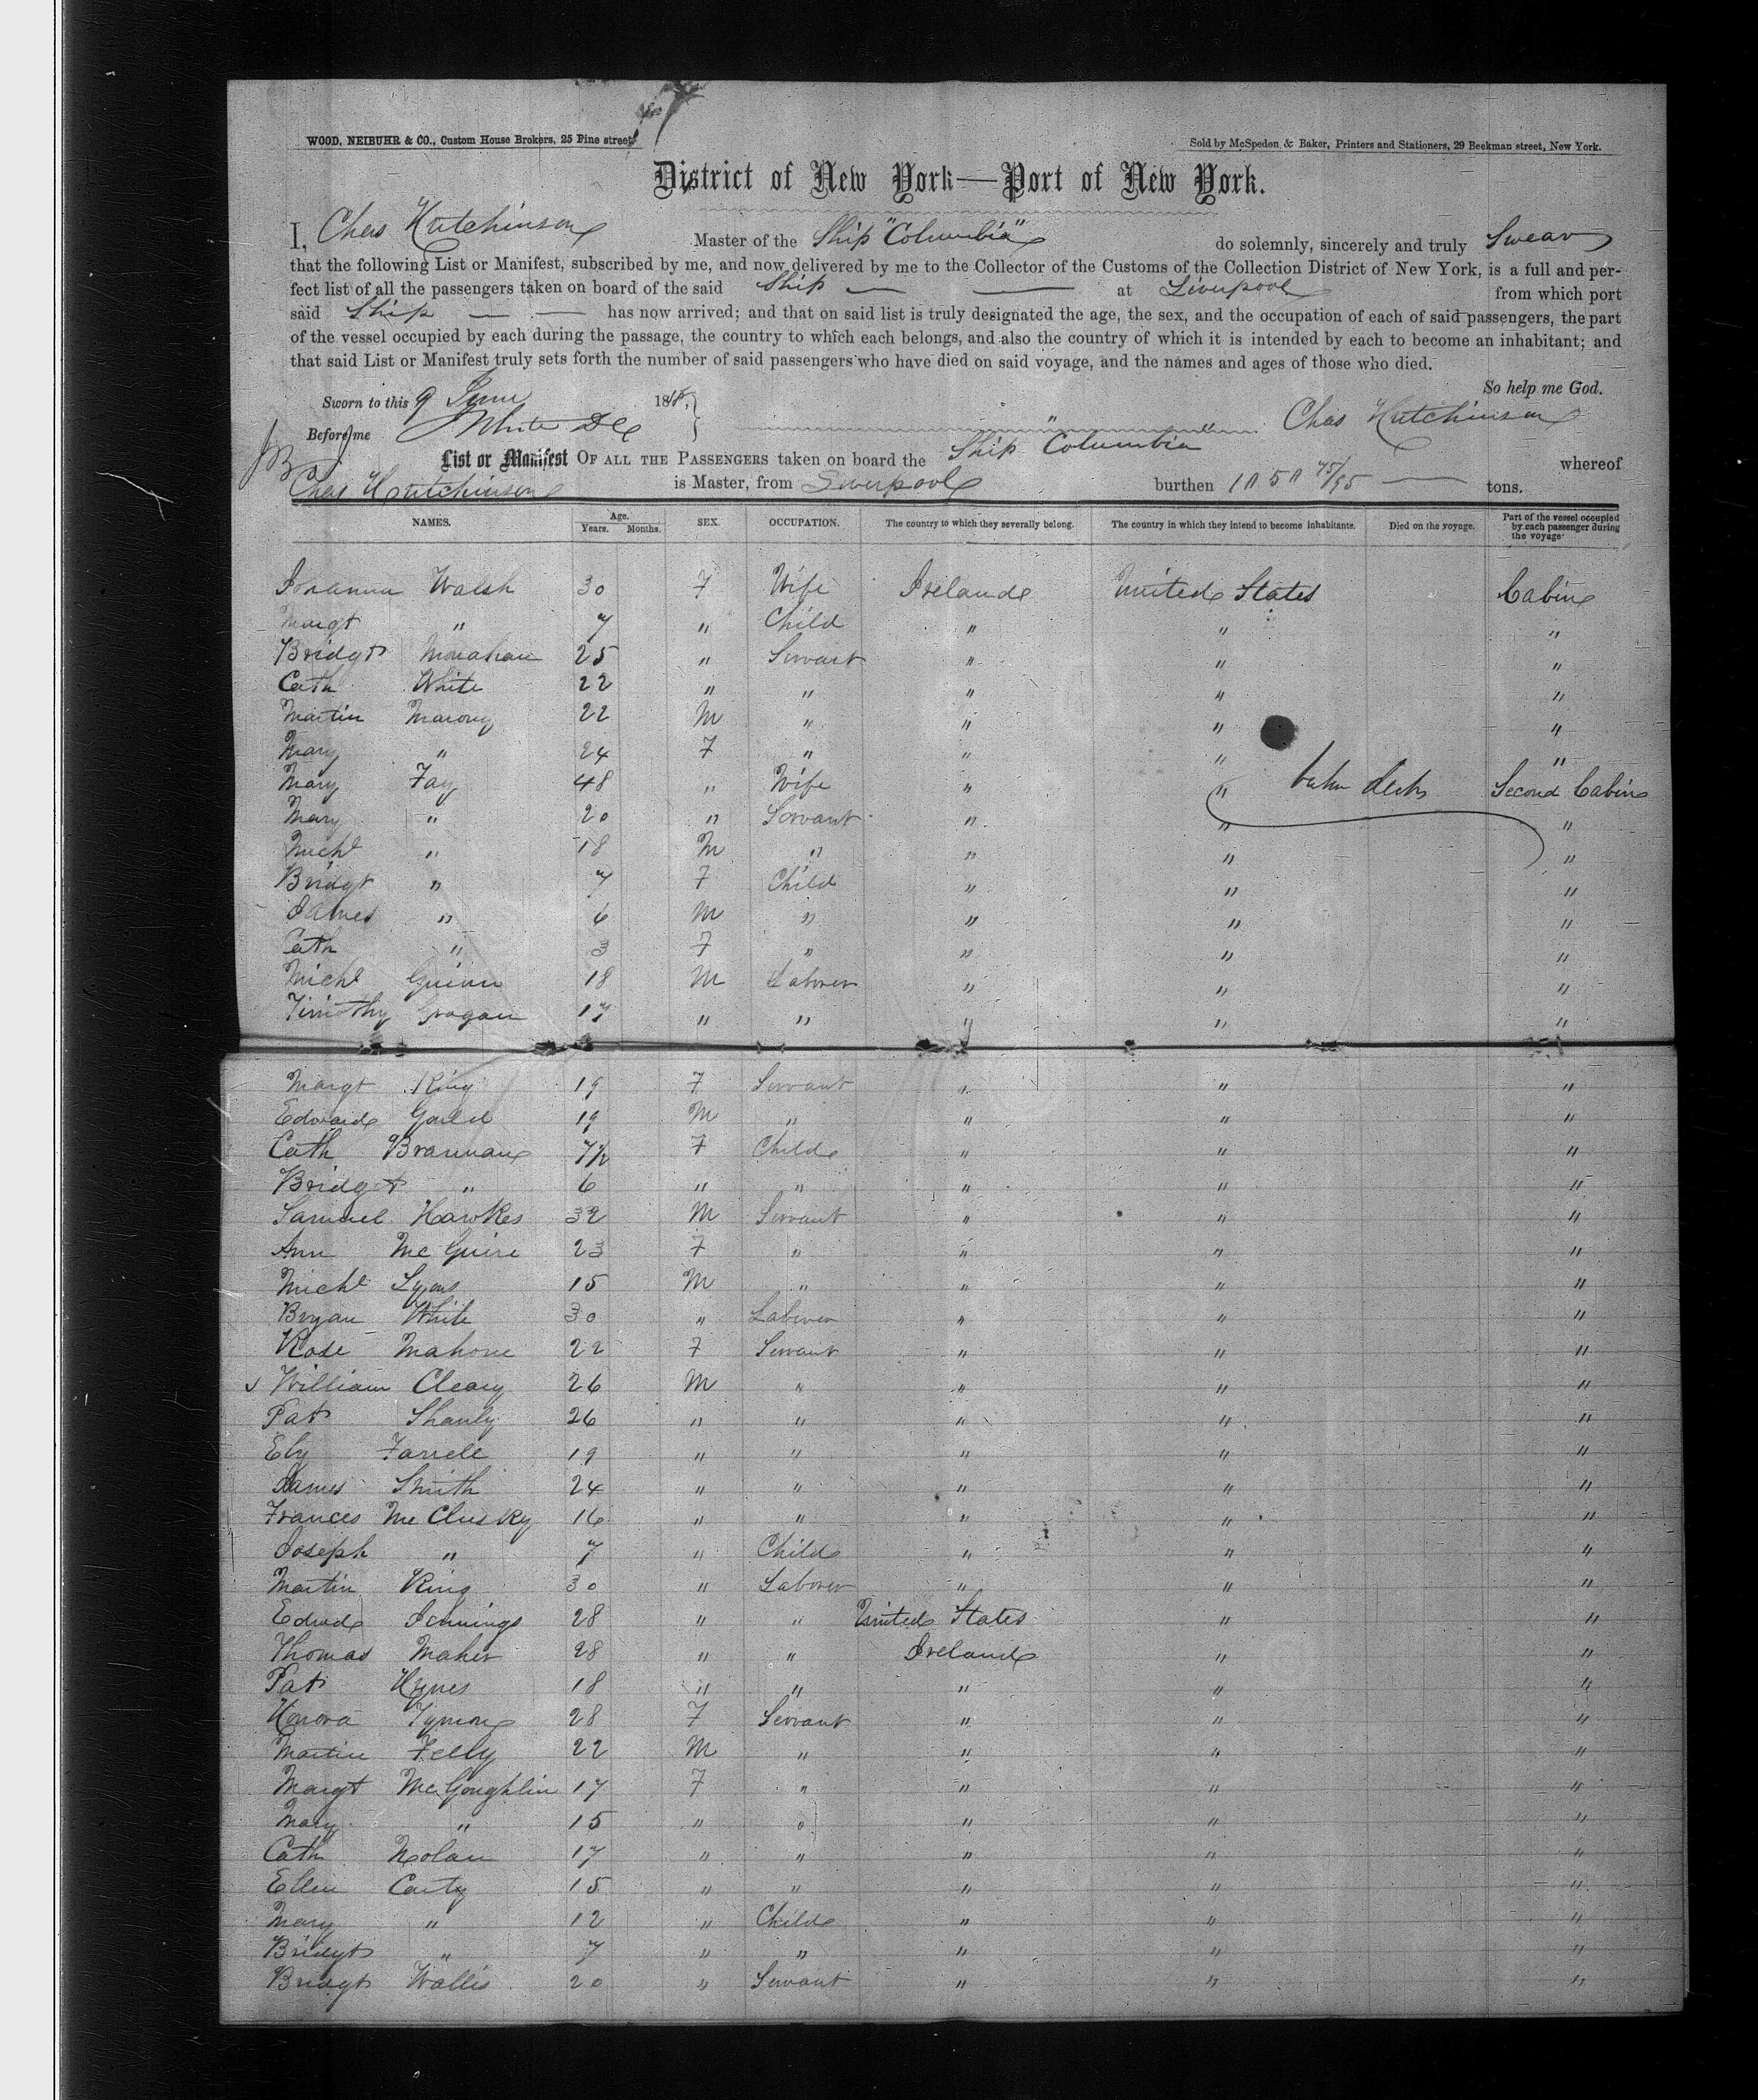 WOOD, NEIBUHR & CO., Custom House Brokers, 25 Pine street.
Sold by McSpedon & Baker, Printers and Stationers, 29 Beekman street, New York.
District of New York—Port of New York.
I, Chas Hutchinson Master of the Ship "Columbia" do solemnly, sincerely and truly Swear
that the following List or Manifest, subscribed by me, and now delivered by me to the Collector of the Customs of the Collection District of New York, is a full and per-
fect list of all the passengers taken on board of the said Ship — — at Liverpool from which port
said Ship — — has now arrived; and that on said list is truly designated the age, the sex, and the occupation of each of said passengers, the part
of the vessel occupied by each during the passage, the country to which each belongs, and also the country of which it is intended by each to become an inhabitant; and
that said List or Manifest truly sets forth the number of said passengers who have died on said voyage, and the names and ages of those who died.
So help me God.
Sworn to this 9 June 18
Before me White DC Chas Hutchinson
List or Manifest OF ALL THE PASSENGERS taken on board the Ship "Columbia" whereof
Chas Hutchinson is Master, from Liverpool burthen 1050 75/95 — tons.
NAMES. Age. Years. Months. SEX. OCCUPATION. The country to which they severally belong. The country in which they intend to become inhabitants. Died on the voyage. Part of the vessel occupied by each passenger during the voyage
Johanna Walsh 30 F Wife Ireland United States Cabin
Margt " 7 " Child " " "
Bridgt Monahan 25 " Servant " " "
Cath White 22 " " " " "
Martin Marony 22 M " " " "
Mary " 24 F " " " "
Mary Fay 48 " Wife " " Second Cabin
Mary " 20 " Servant " " "
Michl " 18 M " " " "
Bridgt " 7 F Child " " "
James " 6 M " " " "
Cath " 3 F " " " "
Michl Guinn 18 M Laborer " " "
Timothy Grogan 17 " " " " "
Margt King 19 F Servant " " "
Edward 19 M " " " "
Cath Brannan 7½ F Child " " "
Bridget " 6 " " " " "
Samuel Hawkes 32 M Servant " " "
Ann McGuire 23 F " " " "
Michl Lyons 15 M " " " "
Bryan White 30 " Laborer " " "
Rose Mahone 22 F Servant " " "
William Cleary 26 M " " " "
Pat Shanly 26 " " " " "
Ely Farrell 19 " " " " "
James Smith 24 " " " " "
Frances McClusky 16 " " " " "
Joseph " 7 " Child " " "
Martin King 30 " Laborer " " "
Edwd Jennings 28 " " United States " "
Thomas Maher 28 " " Ireland " "
Pat Hynes 18 " " " " "
Honora Tymon 28 F Servant " " "
Martin Felly 22 M " " " "
Margt McGoughlin 17 F " " " "
Mary " 15 " " " " "
Cath Nolan 17 " " " " "
Ellen Carty 15 " " " " "
Mary " 12 " Child " " "
Bridgt " 7 " " " " "
Bridgt Wallis 20 " Servant " " "